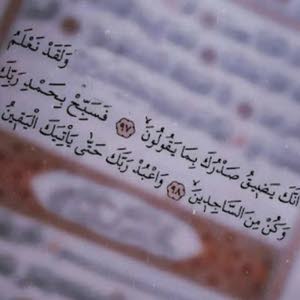 وَلَقَدْ نَعْلَمُ
أَنَّكَ يَضِيقُ صَدْرُكَ بِمَا يَقُولُونَ ٩٧ فَسَبِّحْ بِحَمْدِ رَبِّكَ
وَكُنْ مِنَ السَّاجِدِينَ ٩٨ وَاعْبُدْ رَبَّكَ حَتَّى يَأْتِيَكَ الْيَقِينُ